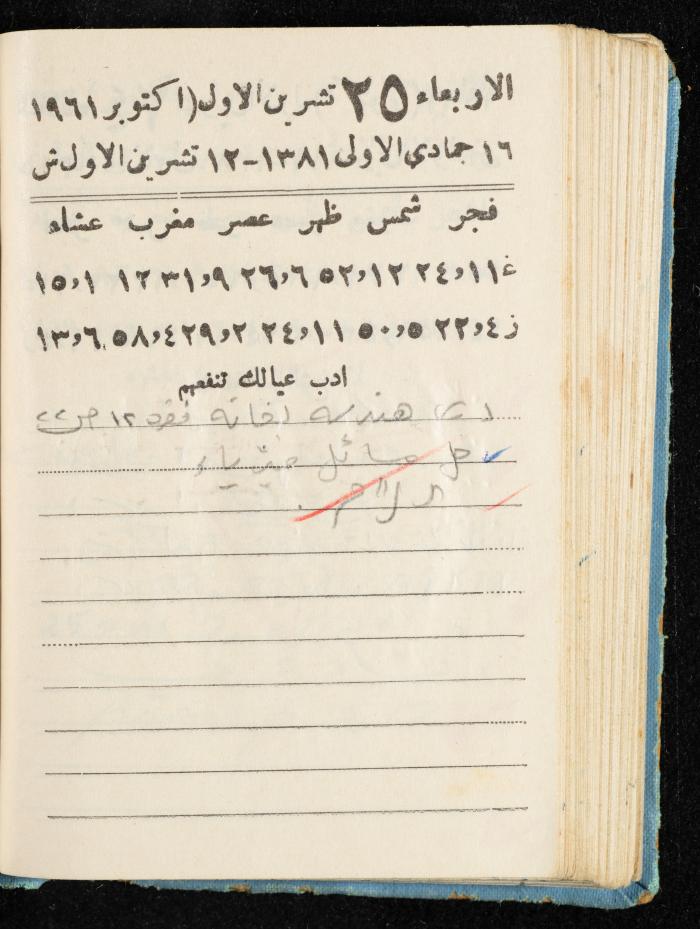 الاربعاء ٢٥ تشرين الاول (اكتوبر ١٩٦١
١٦ جمادي الاولى ١٣٨١-١٢ تشرين الاول ش
فجر شمس ظهر عصر مغرب عشاء
غ ١١و٢٤ ١٢و٥٢ ٦و٢٦ ٩و٣١ ١٢ ١و١٥
ز ٤و٢٢ ٥و٥٠ ١١و٢٤ ٢و٢٩ ٤و٥٨ ٦و١٣
ادب عيالك تنفعهم
هندسه ١٢ ص
حل مسائل فيزياء